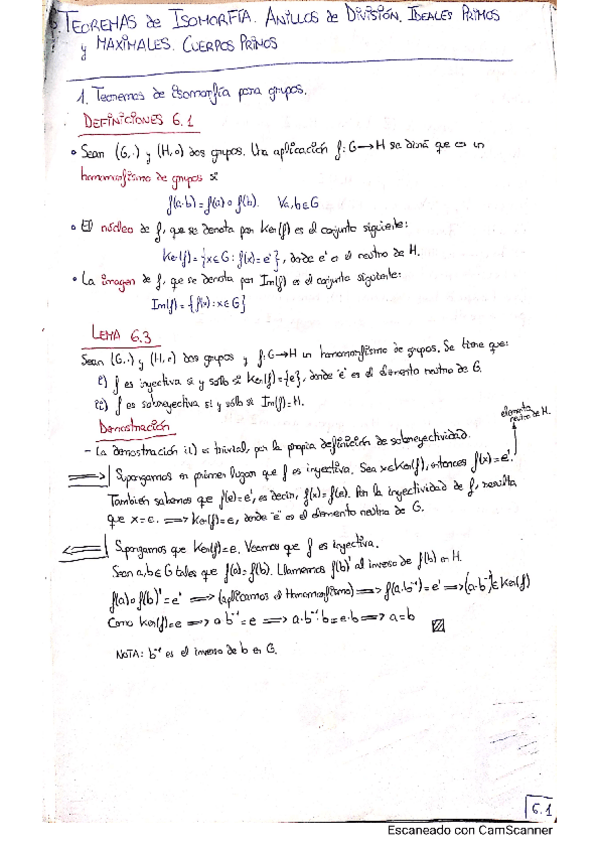 6. TEOREMAS de ISOMORFÍA. ANILLOS de DIVISIÓN. IDEALES PRIMOS
y MAXIMALES. CUERPOS PRIMOS
1. Teoremas de Isomorfía para grupos.
DEFINICIONES 6.1
• Sean (G,·) y (H,∘) dos grupos. Una aplicación f: G→H se dirá que es un
homomorfismo de grupos si
f(a·b) = f(a) ∘ f(b). ∀a,b∈G
• El núcleo de f, que se denota por Ker(f) es el conjunto siguiente:
Ker(f) = {x∈G : f(x) = e'}, donde e' es el neutro de H.
• La imagen de f, que se denota por Im(f) es el conjunto siguiente:
Im(f) = {f(x) : x∈G}
LEMA 6.3
Sean (G,·) y (H,∘) dos grupos y f: G→H un homomorfismo de grupos. Se tiene que:
i) f es inyectiva si y sólo si Ker(f) = {e}, donde 'e' es el elemento neutro de G.
ii) f es sobreyectiva si y sólo si Im(f) = H.
elemento
neutro de H.
Demostración
- La demostración ii) es trivial, por la propia definición de sobreyectividad.
⟹ Supongamos en primer lugar que f es inyectiva. Sea x∈Ker(f), entonces f(x) = e'.
También sabemos que f(e) = e', es decir, f(x) = f(e). Por la inyectividad de f, resulta
que x = e. ⟹ Ker(f) = e, donde "e" es el elemento neutro de G.
⟸ Supongamos que Ker(f) = e. Veamos que f es inyectiva.
Sean a,b∈G tales que f(a) = f(b). Llamemos f(b)' al inverso de f(b) en H.
f(a) ∘ f(b)' = e' ⟹ (aplicamos el Homomorfismo) ⟹ f(a·b⁻¹) = e' ⟹ (a·b⁻¹) ∈ Ker(f)
Como Ker(f) = e ⟹ a·b⁻¹ = e ⟹ a·b⁻¹·b = e·b ⟹ a = b
NOTA: b⁻¹ es el inverso de b en G.
6.1
Escaneado con CamScanner